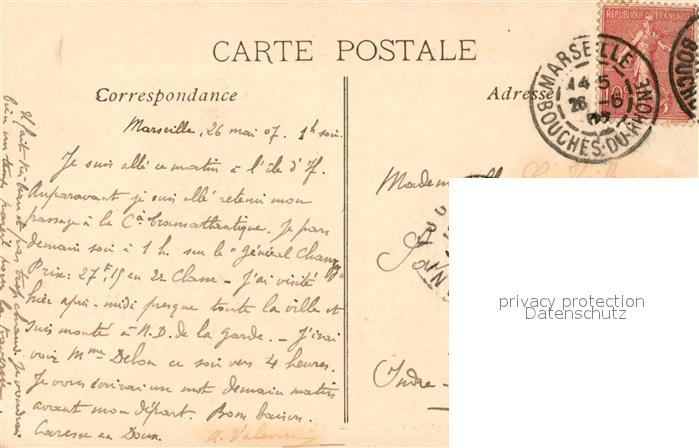 CARTE POSTALE
Correspondance
Adresse
RÉPUBLIQUE FRANÇAISE
MARSEILLE
BOUCHES-DU-RHONE
Marseille, 26 mai 07. 1h soir.
Je suis allé ce matin à l'île d'If.
Auparavant je suis allé retenir mon
passage à la Cie transatlantique. Je pars
demain soir à 1 h. sur le "Général Chanzy"
Prix: 27f,15 en 2e Classe - J'ai visité
hier après-midi presque toute la ville et
suis monté à N.D. de la garde. - J'irai
voir Mme Delon ce soir vers 4 heures.
Je vous écrirai un mot demain matin
avant mon départ. Bons baisers.
Caresse en Doux.
Indre-
privacy protection
Datenschutz